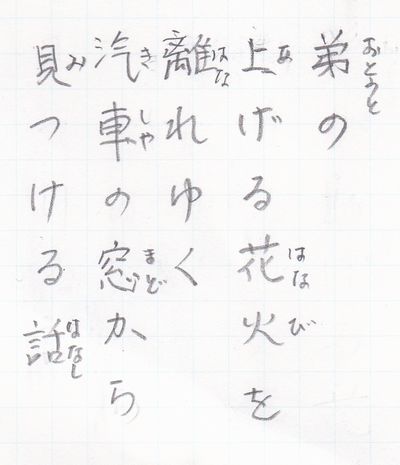 弟の
上げる花火を
離れゆく
汽車の窓から
見つける話
おとうと
あ
はな
び
はな
き
しゃ
まど
み
はなし